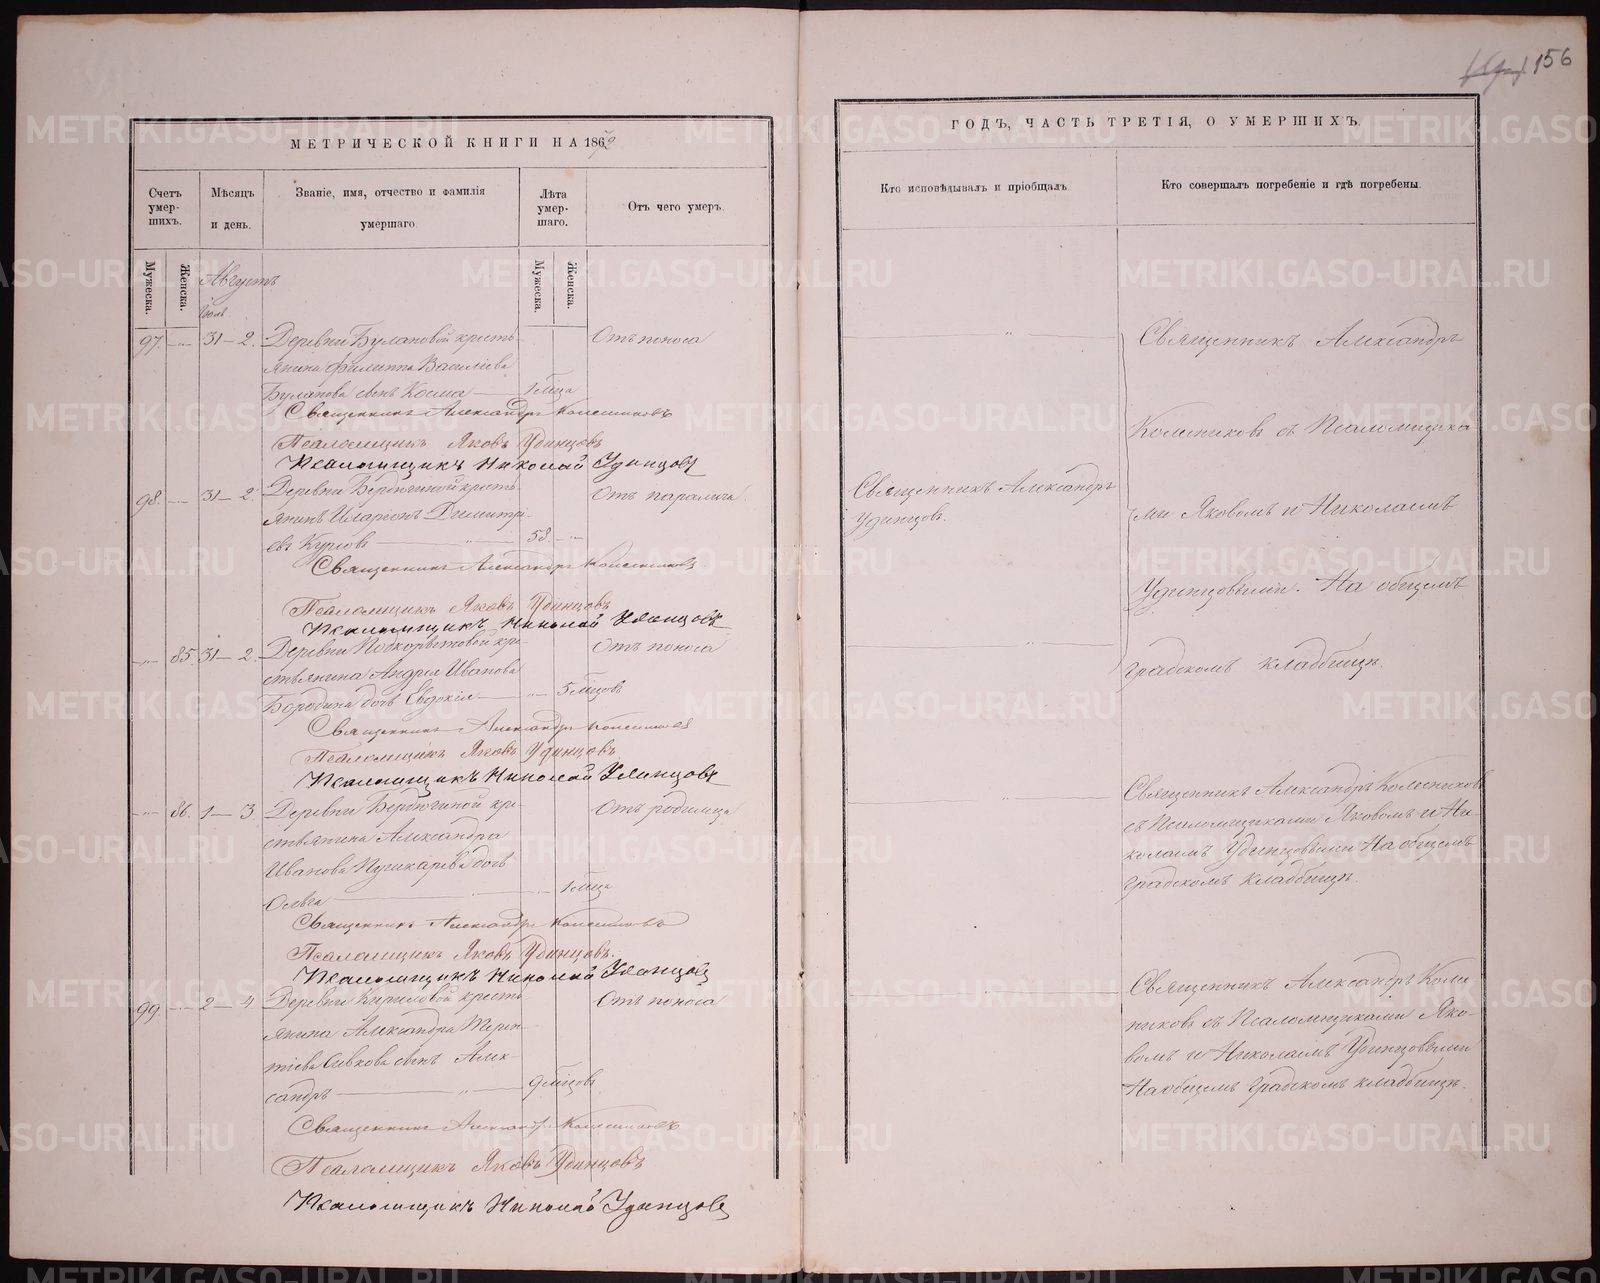 156
МЕТРИЧЕСКОЙ КНИГИ НА 1862
Счетъ умер-шихъ.
Мѣсяцъ и день.
Званіе, имя, отчество и фамилія умершаго.
Лѣта умер-шаго.
Отъ чего умеръ.
Мужеска.
Женска.
Мужеска.
Женска.
Августъ
Іюль
97. 31–2. Деревни Булановой кресть- Отъ поноса
янина Филиппа Василіева
Буланова сынъ Косма 1 мѣсяца
Священникъ Александръ Колесниковъ
Псаломщикъ Яковъ Удинцовъ
Псаломщикъ Николай Удинцовъ
98. 31–2. Деревни Бердюгиной кресть- Отъ паралича.
янинъ Иларіонъ Димитрі-
евъ 58.
Священникъ Александръ Колесниковъ
Псаломщикъ Яковъ Удинцовъ
Псаломщикъ Николай Удинцовъ
85. 31–2. Деревни Подкорытовой кре- Отъ поноса
стьянина Андрея Иванова
Бородина дочь Евдокія 5 мѣсцовъ
Священникъ Александръ Колесниковъ
Псаломщикъ Яковъ Удинцовъ
Псаломщикъ Николай Удинцовъ
86. 1–3. Деревни Бердюгиной кре- Отъ родимца
стьянина Александра
Иванова Пушкарева дочь
Ольга 1 мѣсца
Священникъ Александръ Колесниковъ
Псаломщикъ Яковъ Удинцовъ.
Псаломщикъ Николай Удинцовъ
99. 2–4. Деревни Кириловой кресть- Отъ поноса
янина Александра Терен-
тіева сынъ Алек-
сандръ 9 мѣсцовъ
Священникъ Александръ Колесниковъ
Псаломщикъ Яковъ Удинцовъ
Псаломщикъ Николай Удинцовъ
ГОДЪ, ЧАСТЬ ТРЕТІЯ, О УМЕРШИХЪ.
Кто исповѣдывалъ и пріобщалъ
Кто совершалъ погребеніе и гдѣ погребены.
Священникъ Александръ
Колесниковъ съ Псаломщика
Священникъ Александръ
Удинцовъ.
ми Яковомъ и Николаемъ
Удинцовыми. На общемъ
градскомъ кладбищѣ.
Священникъ Александръ Колесниковъ
съ Псаломщиками Яковомъ и Ни-
колаемъ Удинцовыми На общемъ
градскомъ кладбищѣ.
Священникъ Александръ Колес
никовъ съ Псаломщиками Яко-
вомъ и Николаемъ Удинцовыми
На общемъ градскомъ кладбищѣ.
METRIKI.GASO-URAL.RU